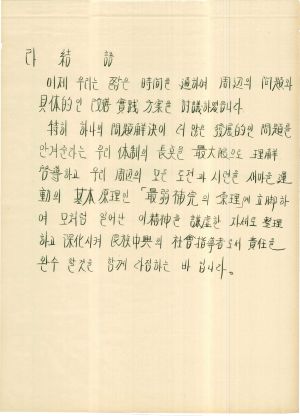 라 結 語
이제 우리는 짧은 時間을 通하여 周辺의 問題와
具体的인 改善 實践 方案을 討議하였읍니다.
特히 하나의 問題解決이 더 많은 發展的인 問題을
안겨준다는 우리 体制의 長点을 最大限으로 理解
하고 우리 周辺의 모든 도전과 시련을 새마을 運
動의 基本 原理인 「最弱補完의 原理에 立脚하
여 모처럼 일어난 이精神을 謙虛한 자세로 整理
하고 深化시켜 民族中興의 社會指導者로서 責任을
완수 할것을 함께 다짐하는 바 입니다。